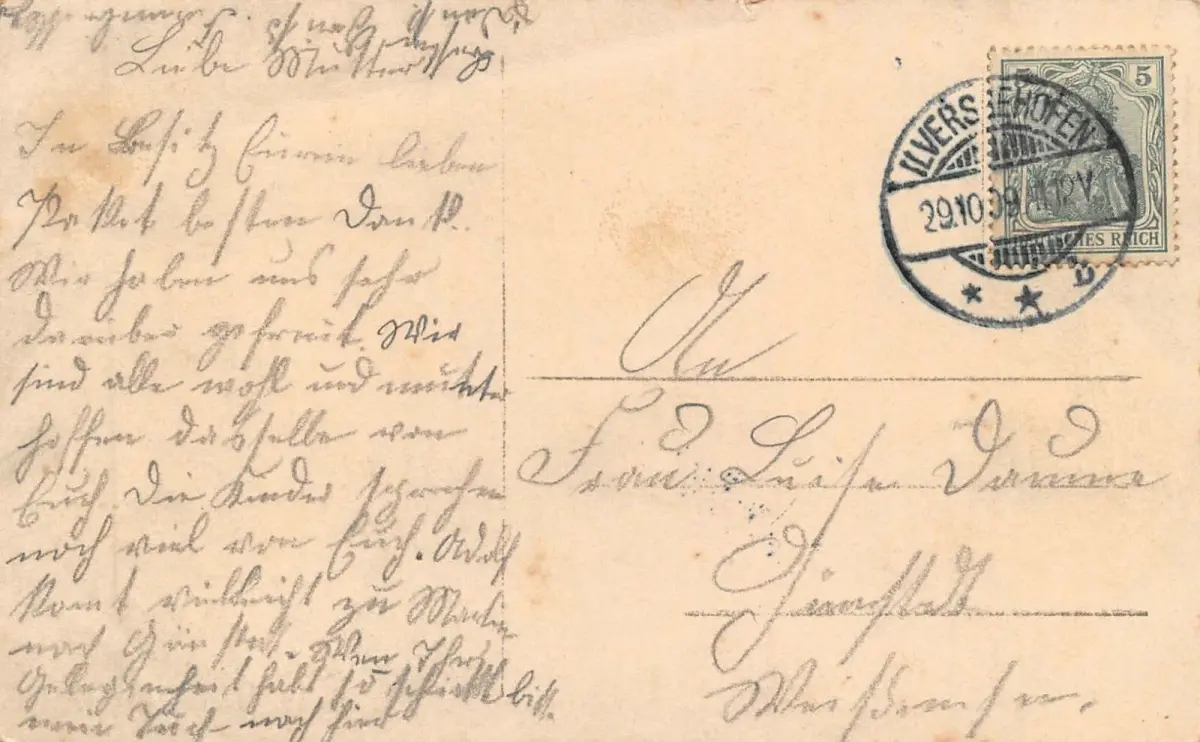 Liebe Mutter
In Besitz Eurem lieben
Paket besten Dank.
Wir haben uns sehr
darüber gefreut. Wir
sind alle wohl und munter
hoffen dasselbe von
Euch. Die Kinder sprechen
noch viel von Euch. Adolf
komt vielleicht zu Martin
nach Günstet. Wen Ihr
Gelegenheit habt so schickt bitt.
mein Tuch nach hier
ILVERSGEHOFEN
29.10.09 11-12V
D
5
DEUTSCHES REICH
An
Frau Luise Damme
Günstedt
Weißensee.